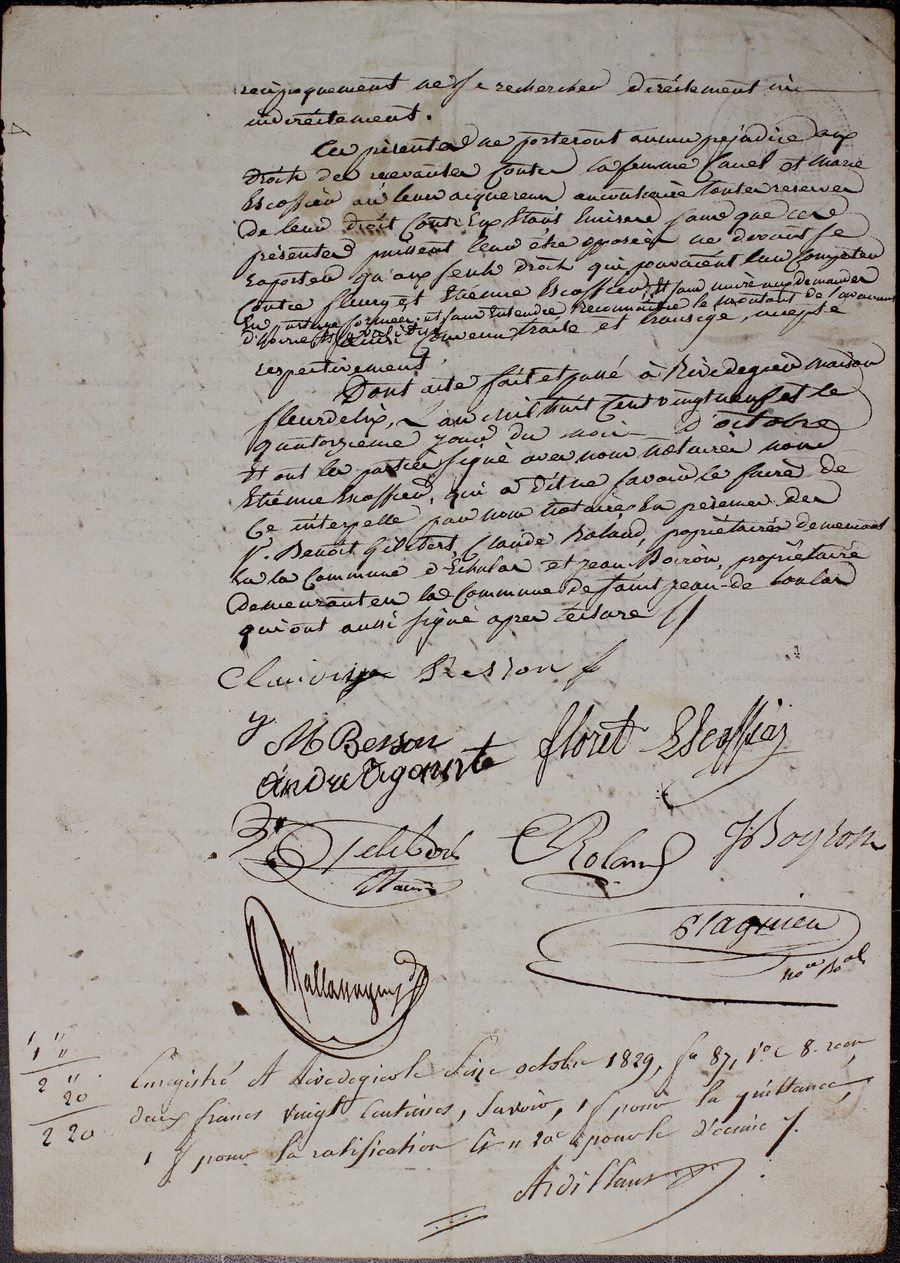 reciproquement ne se rechercher directement ni
indirectement.
Les présentes ne porteront aucun préjudice aux
droits des contre la femme et Marie
Escoffier ni leur acquereur, au contraire toutes reserves
de leurs droit contre Eux Etant sans que ces
présentes puissent leur être opposées ne devant se
raporter qu'aux seuls droits qui pouvaient leur Compéter
Contre fleury et Etienne Escoffier, Et sans nuire aux demandes
En partage formées; et sans Entendre Reconnaitre le montant de
ainsi convenu traité et transigé, accepté
respectivement
Dont acte fait et passé à Rivedegier maison
fleurdelix, L'an mil huit Cent vingt neuf et le
quatorzieme jour du mois d'octobre
Et ont les parties signé avec nous notaires non
Etienne Escoffier, qui a dit ne savoir le faire de
Ce interpellé par nous Notaires En présence des
Sr. Benoit Gilibert, Claude Roland, propriétaires demeurant
En la Commune d'Echalas et Jean Boiron, propriétaire
demeurant en la Commune de Saint jean-de toulas
qui ont aussi signé apres lecture //
Besson
M Besson floret Escoffier
André
Gilibert Roland J Boyron
Plagnieu
Enregistré A Rivedegier le Seize octobre 1829, fo 87, Vo C 8. recu
1 "
2 "
20
2 20
deux francs vingt Centimes, Savoir, 1f pour la quittance,
1 f pour la ratification Et " 20c pour le décime
Ardillaur